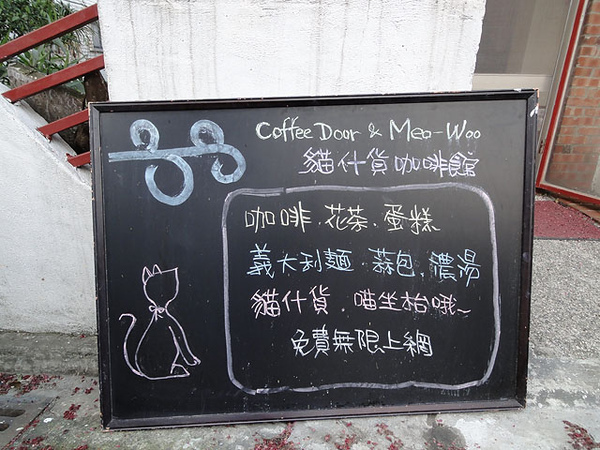 Coffee Door & Meo-Woo
貓什貨咖啡館
咖啡.花茶.蛋糕
義大利麵.蒜包.濃湯
貓什貨.喵坐枱哦~
免費無限上網